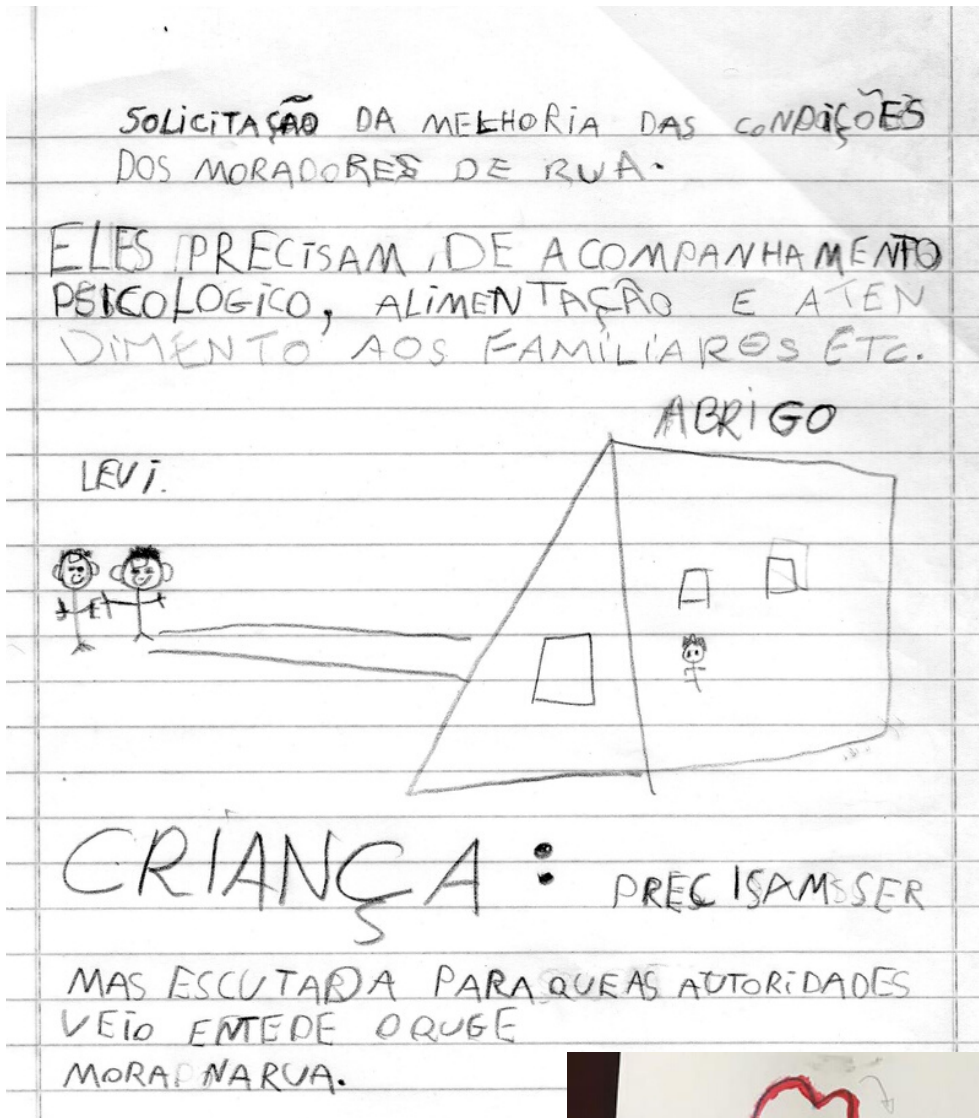 SOLICITAÇÃO DA MELHORIA DAS CONDIÇÕES
DOS MORADORES DE RUA.
ELES PRECISAM, DE ACOMPANHAMENTO
PSICOLOGICO, ALIMENTAÇÃO E ATEN
DIMENTO AOS FAMILIAROS ETC.
ABRIGO
LEVI.
CRIANÇA: PRECISAM SER
MAS ESCUTADA PARA QUE AS AUTORIDADES
VEIO ENTEDE O QUGE
MORA NA RUA.